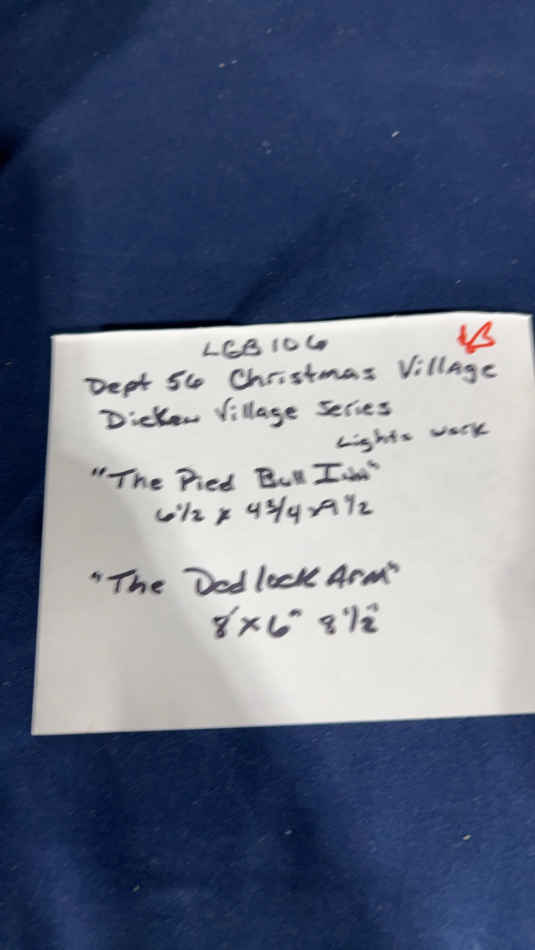 LGB106
Dept 56 Christmas Village
Dicken Village Series
Lights work
"The Pied Bull Inn"
6 1/2 x 4 3/4 x 9 1/2
"The Dedlock Arm"
8" x 6" 8 1/2"